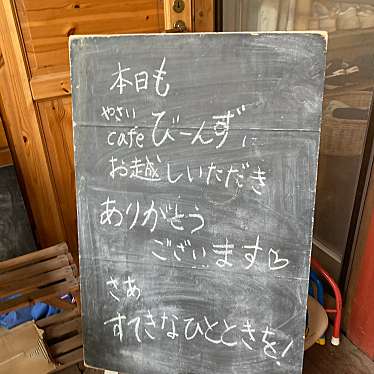 本日も
やさい
cafeびーんずに
お越しいただき
ありがとう
ございます♡
さあ
すてきなひとときを!